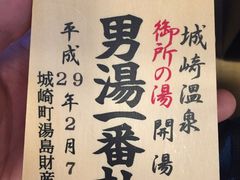 城崎温泉
御所の湯 開湯
男湯一番札
平成29年2月7
城崎町湯島財産